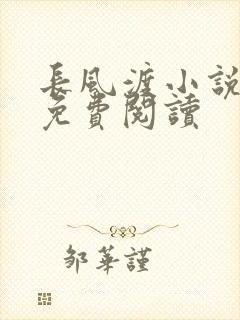 長風渡小說
免費閱讀
邹華謹